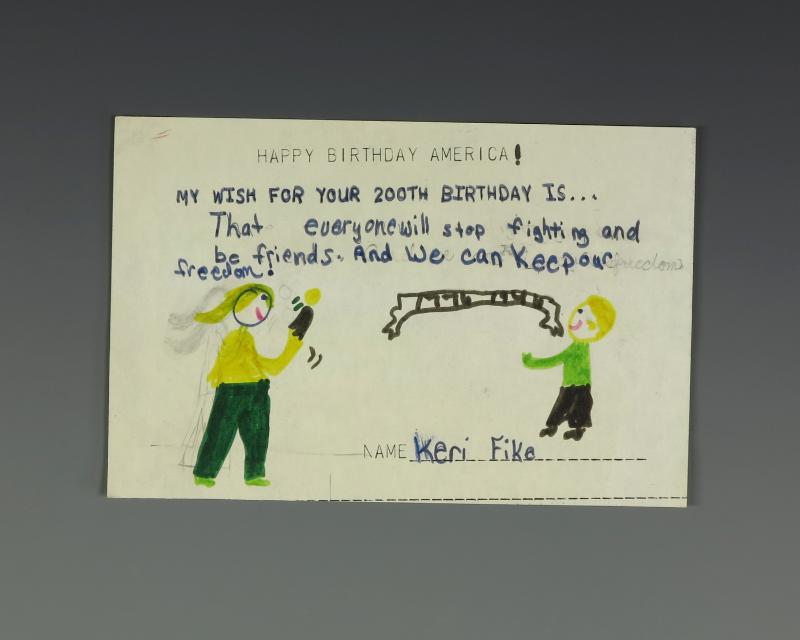 HAPPY BIRTHDAY AMERICA!
MY WISH FOR YOUR 200TH BIRTHDAY IS...
That everyone will stop fighting and
be friends. And We can Keep our freedom
freedom!
1776 1976
NAME Keri Fike